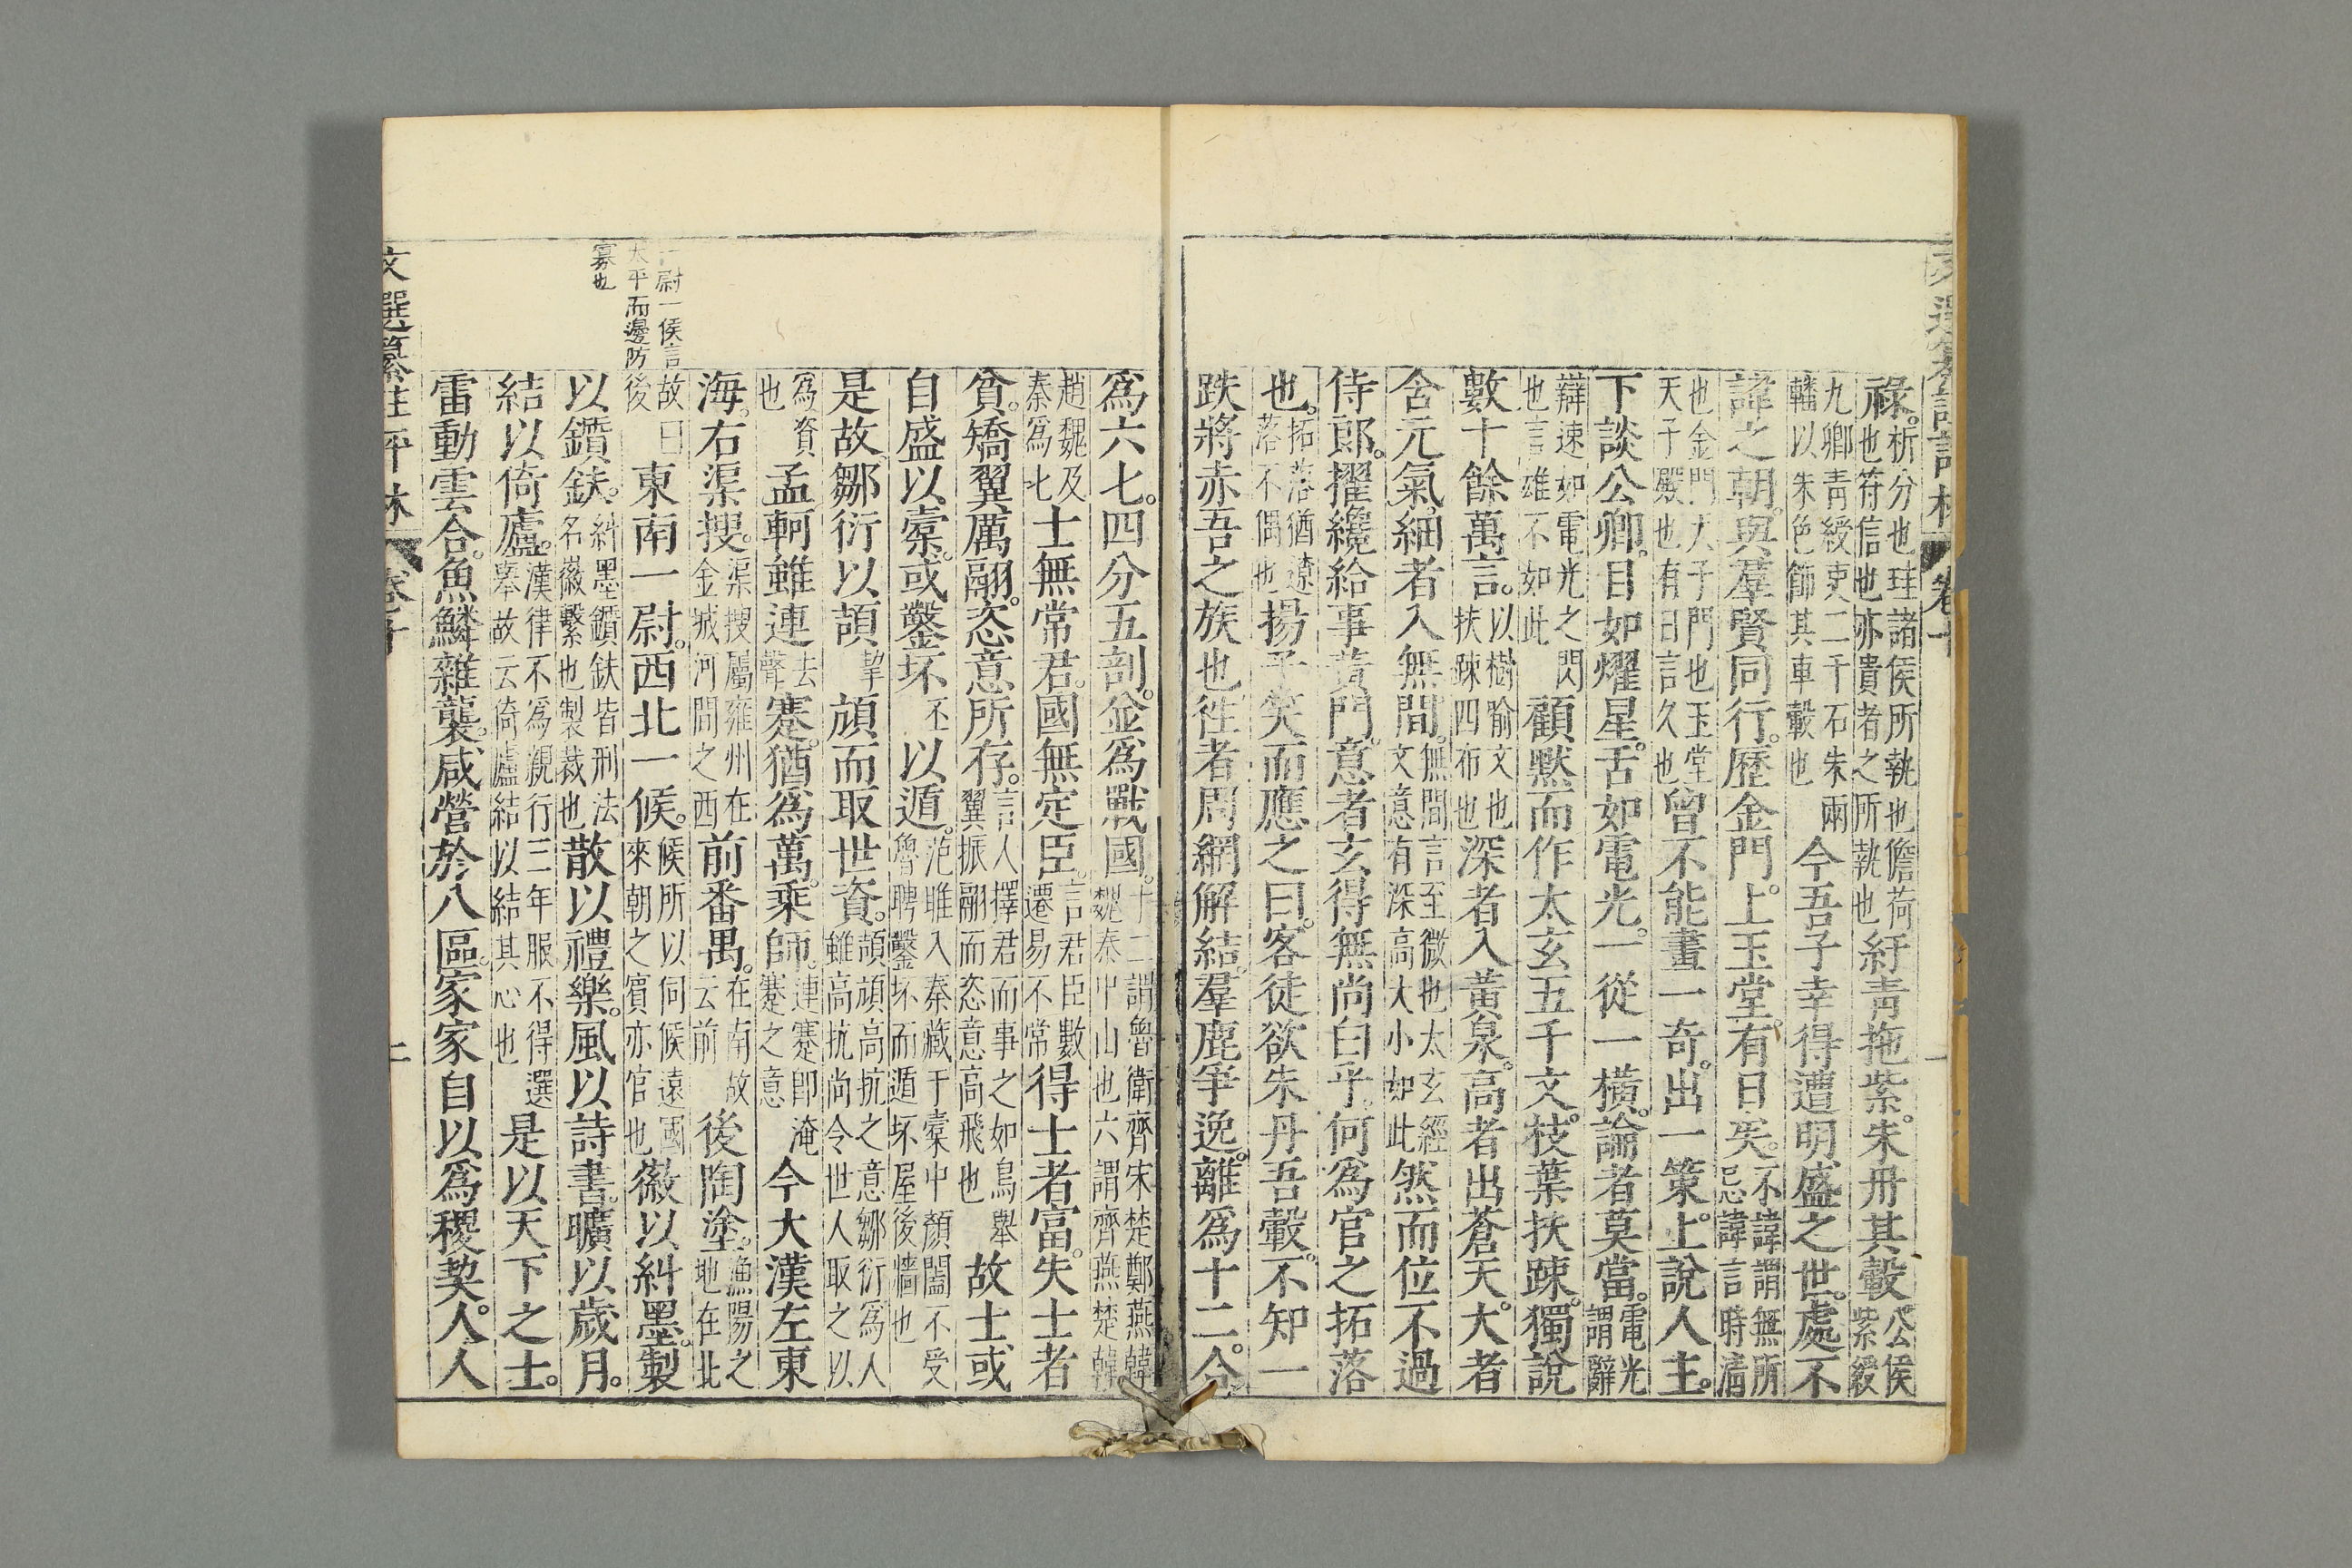 祿。析分也珪諸侯所執也儋荷
也符信也亦貴者之所執也紆青拖紫。朱丹其轂公侯紫綬
九卿青綬吏二千石朱兩轓以朱色飾其車轂也今吾子幸得遭明盛之世。處不
諱之朝。與羣賢同行。歷金門。上玉堂。有日矣。不諱謂無所忌諱言時清
也金門天子門也玉堂天子殿也有日言久也曾不能畫一奇。出一策。上說人主。
下談公卿。目如燿星。舌如電光。一從一橫。論者莫當。電光謂辭
辯速如電光之閃也言雄不如此顧默而作太玄五千文。枝葉扶疎。獨說
數十餘萬言。以樹喻文也扶疎四布也深者入黃泉。高者出蒼天。大者
含元氣。細者入無間。無間言至微也太玄經文意有深高大小如此然而位不過
侍郎。擢纔給事黃門。意者玄得無尚白乎。何為官之拓落
也。拓落猶遼落不偶也揚子笑而應之曰。客徒欲朱丹吾轂。不知一
跌將赤吾之族也徃者周網解結。羣鹿爭逸。離爲十二。合
爲六七。四分五剖。並爲戰國。十二謂魯衛齊宋楚鄭燕韓魏秦中山也六謂齊燕楚韓
趙魏及秦爲七士無常君。國無定臣。言君臣數遷易不常得士者富。失士者
貧。矯翼厲翮。恣意所存。言人擇君而事之如鳥舉翼振翮而恣意高飛也故士或
自盛以橐。或鑿坏丕以遁。范雎入秦藏于橐中顏闔不受魯聘鑿坏而遁坏屋後牆也
是故鄒衍以頡挈頏而取世資。頡頏高抗之意鄒衍爲人雖高抗尚令世人取之以
爲資也孟軻雖連去聲蹇。猶爲萬乘師。連蹇即淹蹇之意今大漢左東
海。右渠搜。渠搜屬雍州在金城河間之西前番禺。在南故云前後陶塗。漁陽之地在北
故曰後東南一尉。西北一候。候所以伺候遠國來朝之賓亦官也徽以糾墨。製
以鑕鈇。糾墨鑕鈇皆刑法名徽繫也製裁也散以禮樂。風以詩書。曠以歲月。
結以倚廬。漢律不爲親行三年服不得選舉故云倚廬結以結其心也是以天下之士。
雷動雲合。魚鱗雜襲。咸營於八區。家家自以爲稷契。人人
尉一候言
太平而邊防
寡也
文選纂註評林
二